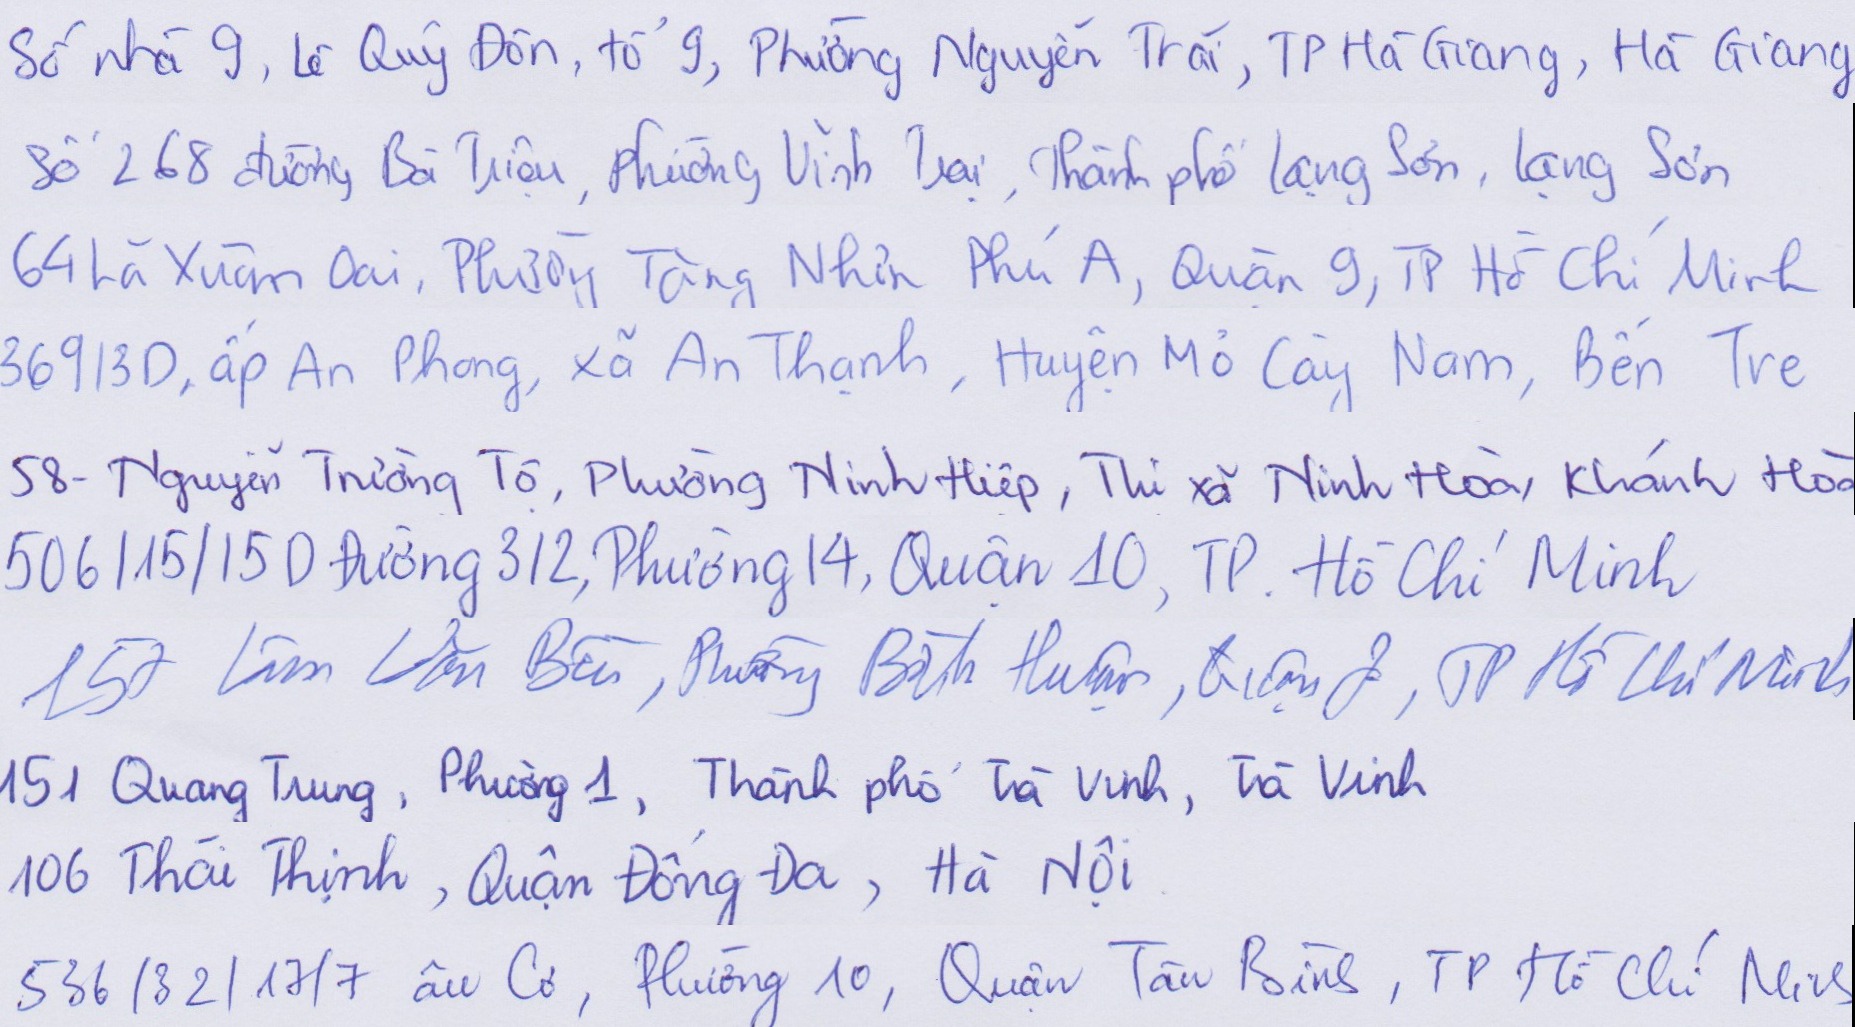 Số nhà 9, Lê Quý Đôn, tổ 9, Phường Nguyễn Trãi, TP Hà Giang, Hà Giang
Số 268 đường Bà Triệu, Phường Vĩnh Trại, Thành phố Lạng Sơn, Lạng Sơn
64 Lã Xuân Oai, Phường Tăng Nhơn Phú A, Quận 9, TP Hồ Chí Minh
369/3D, ấp An Phong, xã An Thạnh, Huyện Mỏ Cày Nam, Bến Tre
58- Nguyễn Trường Tộ, Phường Ninh Hiệp, Thị xã Ninh Hoà, Khánh Hoà
506/15/15D Đường 3/2, Phường 14, Quận 10, TP. Hồ Chí Minh
157 Lâm Văn Bền, Phường Bình Thuận, Quận 7, TP Hồ Chí Minh
151 Quang Trung, Phường 1, Thành phố Trà Vinh, Trà Vinh
106 Thái Thịnh, Quận Đống Đa, Hà Nội
536/32/17/7 âu Cơ, Phường 10, Quận Tân Bình, TP Hồ Chí Minh